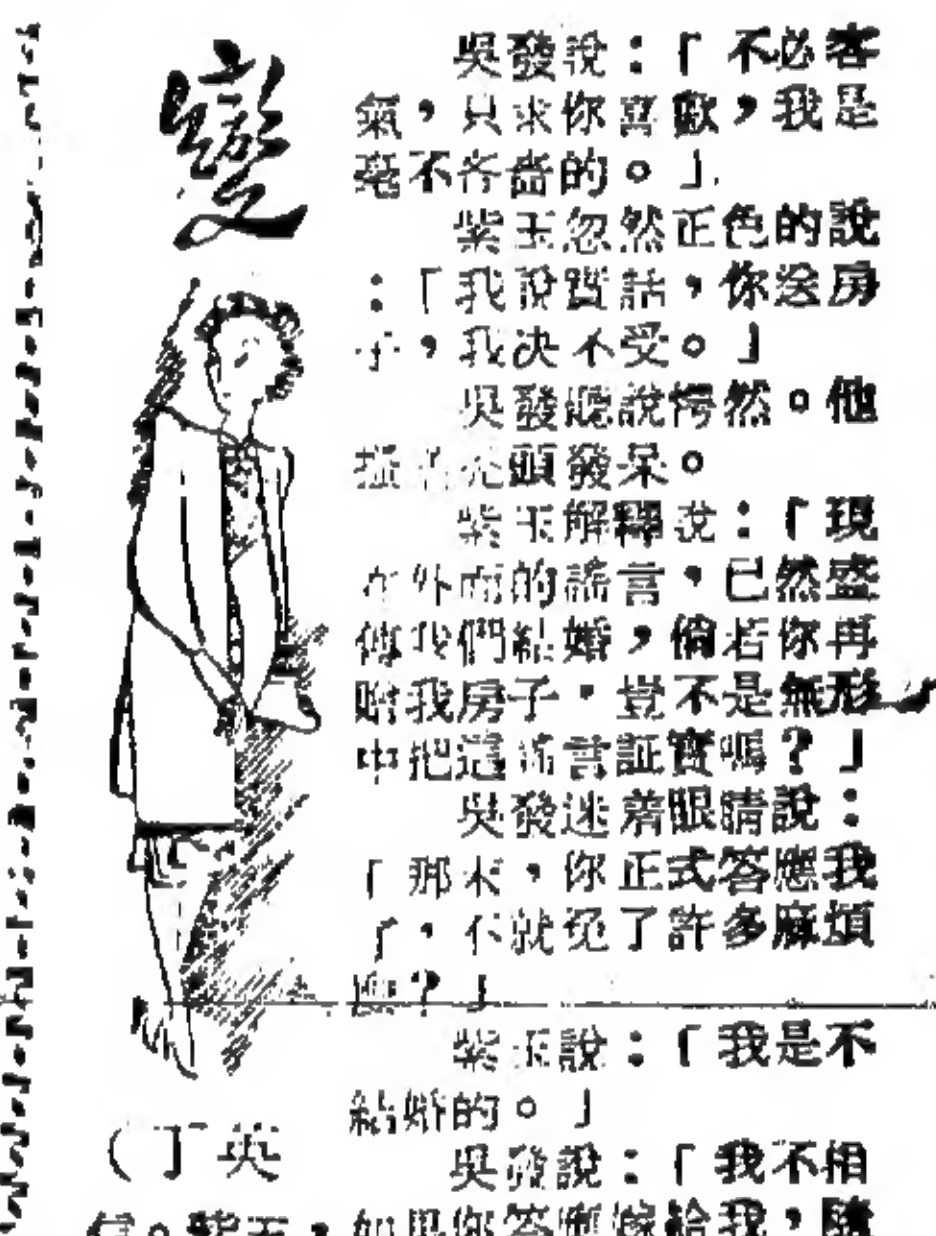 變
吳發說：「不必客
氣，只求你喜歡，我是
毫不吝嗇的。」
紫玉忽然正色的說
：「我說實話，你送房
子，我决不受。」
吳發聽說愕然。他
頭發呆。
紫玉解釋說：「現
在外面的謠言，已然盛
傳我們結婚，倘若你再
贈我房子，豈不是無形
中把這謠言証實嗎？」
吳發迷着眼睛說：
「那末，你正式答應我
了，不就免了許多麻煩
？」
紫玉說：「我是不
結婚的。」
吳發說：「我不相
信。紫玉，如果你答應嫁給我，隨
（丁英